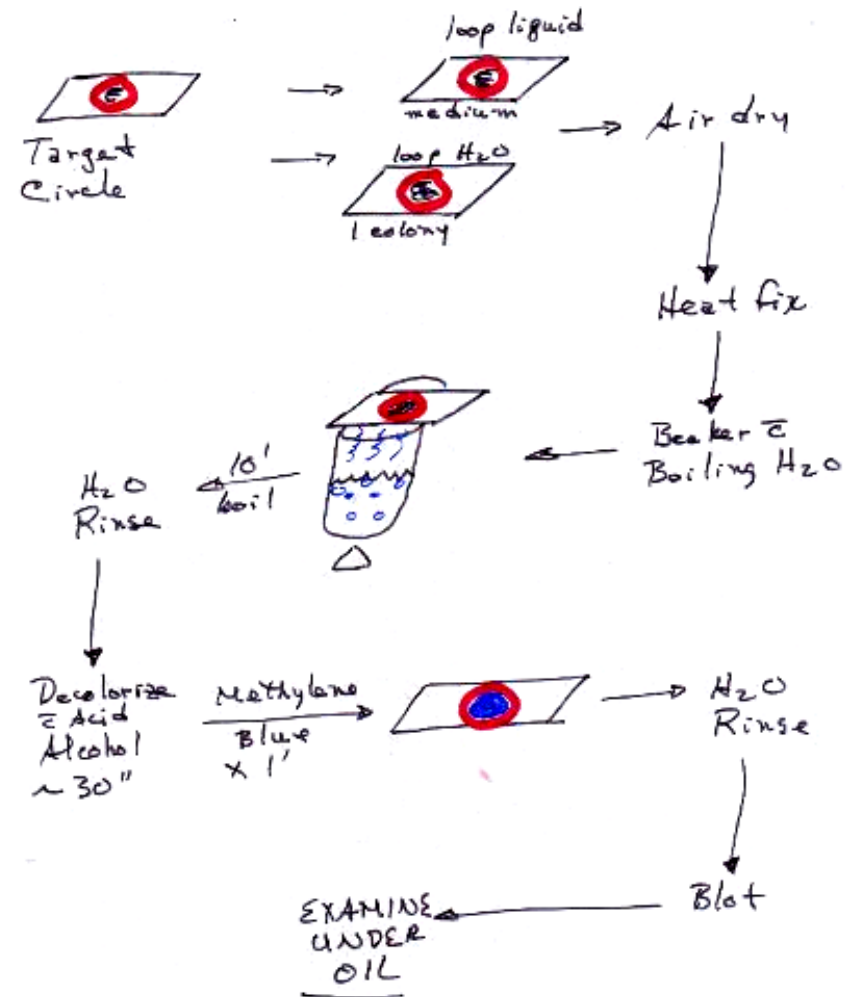 loop liquid
medium
Target
Circle
loop H₂O
1 colony
Air dry
Heat fix
Beaker c̄
Boiling H₂O
10'
boil
H₂O
Rinse
Decolorize
c̄ Acid
Alcohol
~ 30"
Methylene
Blue
x 1'
H₂O
Rinse
Blot
EXAMINE
UNDER
OIL